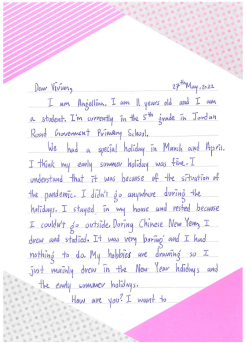 Dear Vivian,
27th May, 2022
I am Angellina. I am 11 years old and I am
a student. I'm currently in the 5th grade in Jordan
Road Government Primary School.
We had a special holiday in March and April.
I think my early summer holiday was fine. I
understand that it was because of the situation of
the pandemic. I didn't go anywhere during the
holidays. I stayed in my house and rested because
I couldn't go outside. During Chinese New Year, I
drew and studied. It was very boring and I had
nothing to do. My hobbies are drawing so I
just mainly drew in the New Year holidays and
the early summer holidays.
How are you? I want to